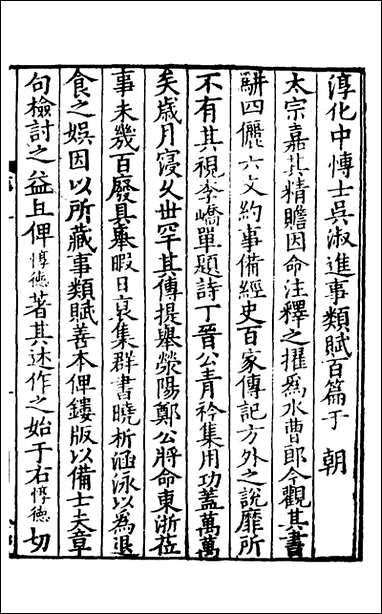 淳化中愽士吳淑進事類賦百篇于　朝
太宗嘉其精贍因命注釋之擢爲水曹郎今觀其書
駢四儷六文約事備經史百家傳記方外之說靡所
不有其視李嶠單題詩丁晉公青衿集用功蓋萬萬
矣歲月寖久丗罕其傳提舉滎陽鄭公將命東浙莅
事未幾百廢具舉暇日裒集群書曉析涵泳以爲退
食之娛因以所藏事類賦善本俾鏤版以備士夫章
句檢討之益且俾惇德著其述作之始于右惇德切